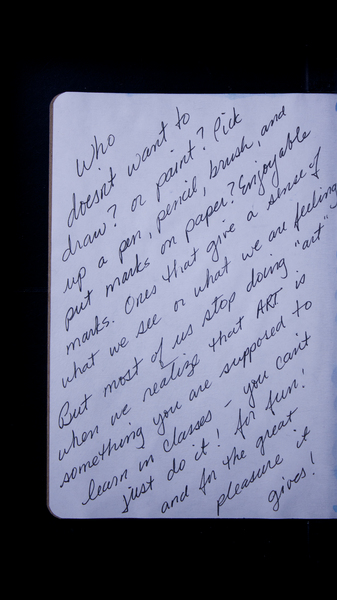 Who
doesn't want to
draw? or paint? Pick
up a pen, pencil, brush, and
put marks on paper? Enjoyable
marks. Ones that give a sense of
what we see or what we are feeling
But most of us stop doing "art"
when we realize that ART is
something you are supposed to
learn in classes - you can't
just do it! for fun!
and for the great
pleasure it
gives!